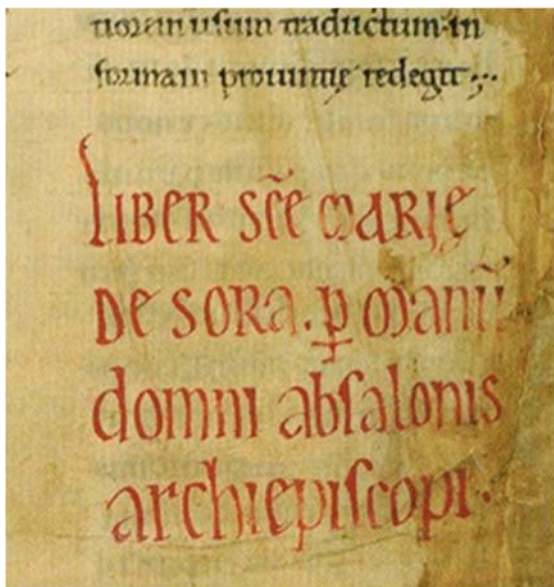 tiorem usum traductum in
formam prouintie redegit
LIBER SC̄E MARIE
DE SORA. ꝑ MANŪ
domni absalonis
archiepiscopi.